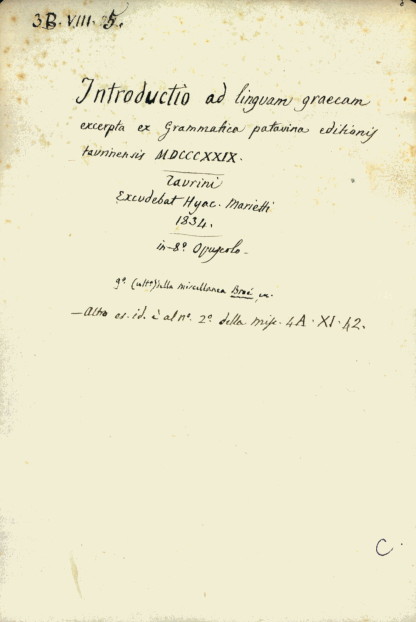 3B. VIII. 5.
Introductio ad linguam graecam
excerpta ex Grammatica patavina editionis
taurinensis MDCCCXXIX.
Taurini
Excudebat Hyac. Marietti
1834.
in-8º Opuscolo.
9º (ulto) della miscellanea
– Altro es. id. è al nº. 2º della misc. 4A. XI. 42.
C.